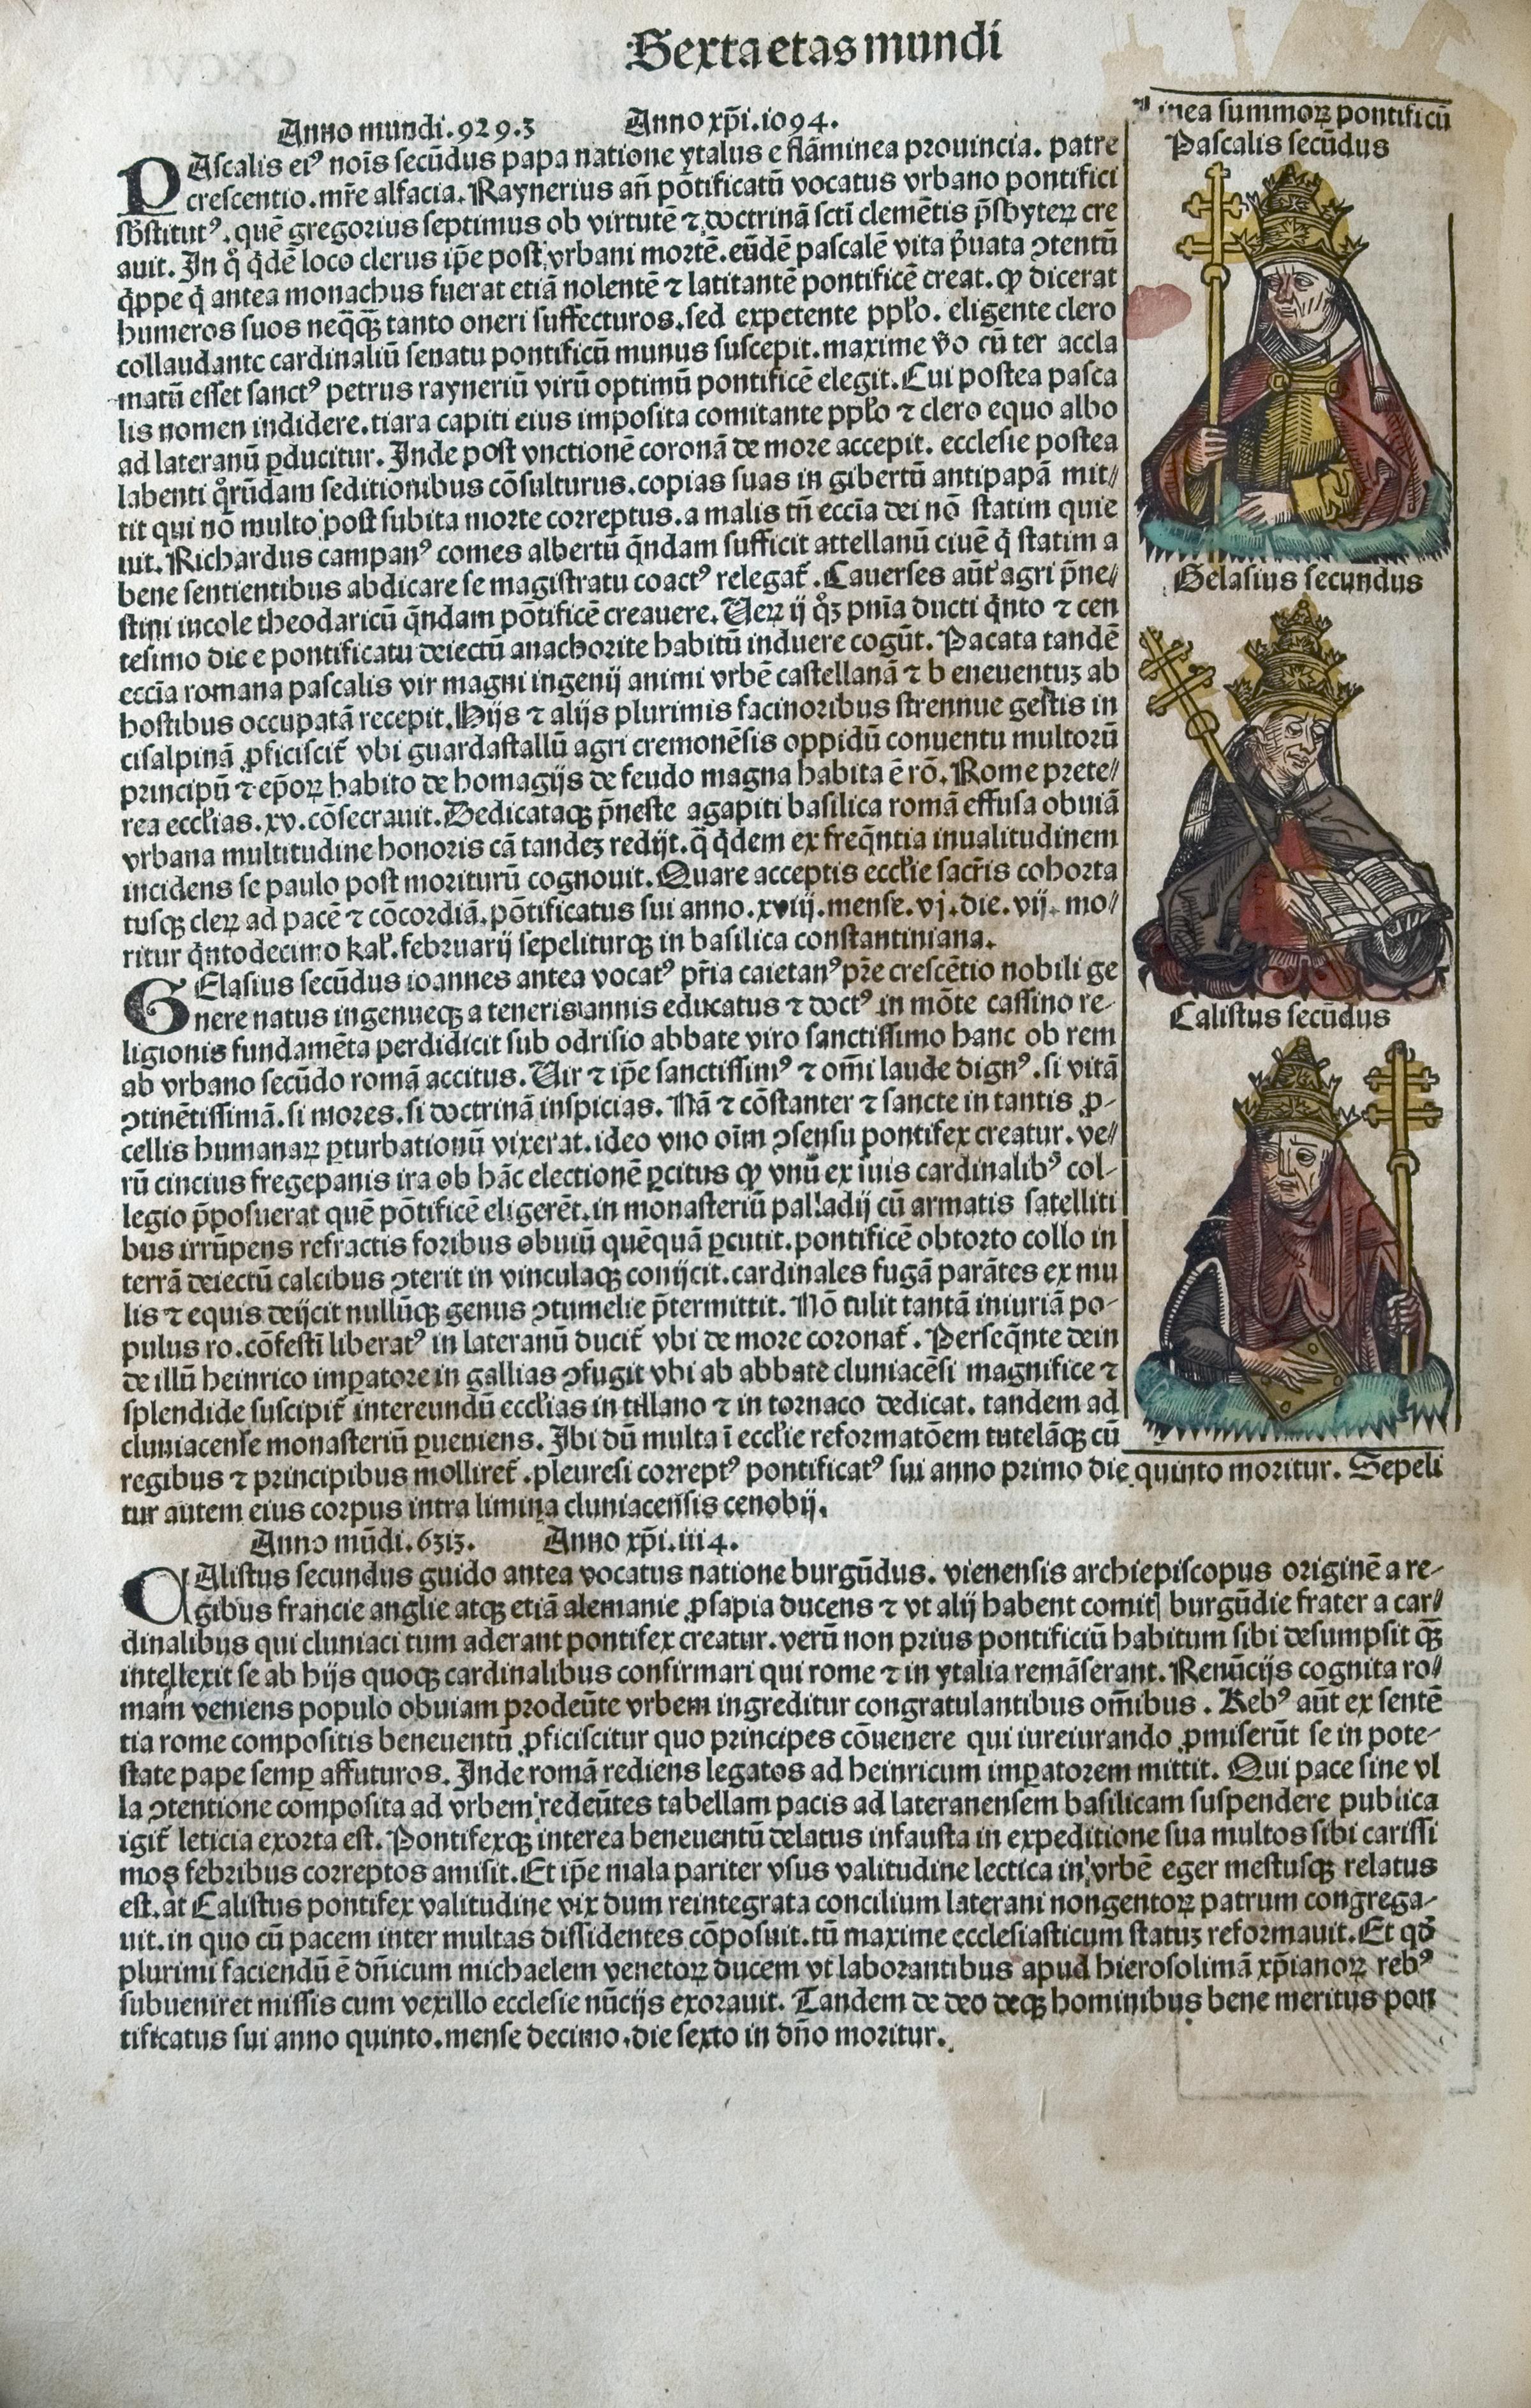 Sexta etas mundi
Anno mundi. 929.3 Anno xp̄i. 1094.
PAscalis eiꝰ nōis secūdus papa natione ytalus e flāminea prouincia. patre
crescentio. mr̄e alfacia. Raynerius an̄ pōtificatū vocatus vrbano pontifici
sb̄stitutꝰ. quē gregorius septimus ob virtutē ⁊ doctrinā scti clemētis p̄sbyteꝝ cre
auit. In q̊ q̇dē loco clerus ip̄e post vrbani mortē. eūdē pascalē vita p̄uata ꝯtentū
q̇ppe q̇ antea monachus fuerat etiā nolentē ⁊ latitantē pontificē creat. ꝙ dicerat
humeros suos neq̄qꝫ tanto oneri suffecturos. sed expetente pplo. eligente clero
collaudante cardinaliū senatu pontificū munus suscepit. maxime v̄o cū ter accla
matū esset sanctꝰ petrus rayneriū virū optimū pontificē elegit. Cui postea pasca
lis nomen indidere. tiara capiti eius imposita comitante pplo ⁊ clero equo albo
ad lateranū ꝑducitur. Inde post vnctionē coronā de more accepit. ecclesie postea
labenti q̊rūdam seditionibus cōsulturus. copias suas in gibertū antipapā mit⸗
tit qui nō multo post subita morte correptus. a malis tn̄ eccīa dei nō statim quie
uit. Richardus campanꝰ comes albertū q̄ndam sufficit attellanū ciuē q̇ statim a
bene sentientibus abdicare se magistratu coactꝰ relegat̄. Cauerses aūt agri p̄ne⸗
stini incole theodaricū q̄ndam pōtificē creauere. Veꝝ ij q̊ꝫ pnīa ducti q̇nto ⁊ cen
tesimo die e pontificatu deiectū anachorite habitū induere cogūt. Pacata tandē
eccīa romana pascalis vir magni ingenij animi vrbē castellanā ⁊ b eneuentuꝫ ab
hostibus occupatā recepit. Hijs ⁊ alijs plurimis facinoribus strennue gestis in
cisalpinā ꝓficiscit̄ vbi guardastallū agri cremonēsis oppidū conuentu multorū
principū ⁊ ep̄oꝝ habito de homagijs de feudo magna habita ē rō. Rome prete⸗
rea eccl̄ias. xv. cōsecrauit. Dedicataqꝫ p̄neste agapiti basilica romā effusa obuiā
vrbana multitudine honoris cā tandeꝫ redijt. q̄ q̇dem ex freq̄ntia inualitudinem
incidens se paulo post moriturū cognouit. Quare acceptis eccl̄ie sacr̄is cohorta
tusqꝫ cleꝝ ad pacē ⁊ cōcordiā. pōtificatus sui anno. xviij. mense. vj. die. vij. mo⸗
ritur q̇ntodecimo kal̄. februarij sepeliturqꝫ in basilica constantiniana.
GElasius secūdus ioannes antea vocatꝰ pr̄ia caietanꝰ pr̄e crescētio nobili ge
nere natus ingenueqꝫ a teneris annis educatus ⁊ doctꝰ in mōte cassino re-
ligionis fundamēta perdidicit sub odrisio abbate viro sanctissimo hanc ob rem
ab vrbano secūdo romā accitus. Vir ⁊ ip̄e sanctissimꝰ ⁊ om̄i laude dignꝰ. si vitā
ꝯtinētissimā. si mores. si doctrinā inspicias. Nā ⁊ cōstanter ⁊ sancte in tantis ꝓ-
cellis humanaꝝ ꝑturbationū vixerat. ideo vno oīm ꝯsensu pontifex creatur. ve⸗
rū cincius fregepanis ira ob hāc electionē ꝑcitus ꝙ vnū ex iuis cardinalibꝰ col-
legio p̄posuerat quē pōtificē eligerēt. in monasteriū palladij cū armatis satelliti
bus irrūpens refractis foribus obuiū quēquā ꝑcutit. pontificē obtorto collo in
terrā deiectū calcibus ꝯterit in vinculaqꝫ conijcit. cardinales fugā parātes ex mu
lis ⁊ equis deijcit nullūqꝫ genus ꝯtumelie p̄termittit. Nō tulit tantā iniuriā po-
pulus ro. cōfestī liberatꝰ in lateranū ducit̄ vbi de more coronat̄. Perseq̄nte dein
de illū heinrico imꝑatore in gallias ꝯfugit vbi ab abbate cluniacēsi magnifice ⁊
splendide suscipit̄ intereundū eccl̄ias in tillano ⁊ in tornaco dedicat. tandem ad
cluniacense monasteriū ꝑueniens. Ibi dū multa ī eccl̄ie reformatōem tutelāqꝫ cū
regibus ⁊ principibus molliret̄. pleuresi correptꝰ pontificatꝰ sui anno primo die quinto moritur. Sepeli
tur autem eius corpus intra limina cluniacensis cenobij.
Anno mūdi. 6313. Anno xp̄i. 1114.
CAlistus secundus guido antea vocatus natione burgūdus. vienensis archiepiscopus originē a re-
gibus francie anglie atqꝫ etiā alemanie ꝓsapia ducens ⁊ vt alij habent comit burgūdie frater a car⸗
dinalibus qui cluniaci tum aderant pontifex creatur. verū non prius pontificiū habitum sibi desumpsit qꝫ
intellexit se ab hijs quoqꝫ cardinalibus confirmari qui rome ⁊ in ytalia remāserant. Renūcijs cognita ro⸗
mam veniens populo obuiam prodeūte vrbem ingreditur congratulantibus om̄ibus. Rebꝰ aūt ex sentē
tia rome compositis beneuentū ꝓficiscitur quo principes cōuenere qui iureiurando ꝓmiserūt se in pote-
state pape semꝑ affuturos. Inde romā rediens legatos ad heinricum imꝑatorem mittit. Qui pace sine vl
la ꝯtentione composita ad vrbem redeūtes tabellam pacis ad lateranensem basilicam suspendere publica
igit̄ leticia exorta est. Pontifexqꝫ interea beneuentū delatus infausta in expeditione sua multos sibi carissi
mos febribus correptos amisit. Et ip̄e mala pariter vsus valitudine lectica in vrbē eger mestusqꝫ relatus
est. at Calistus pontifex valitudine vix dum reintegrata concilium laterani nongentoꝝ patrum congrega-
uit. in quo cū pacem inter multas dissidentes cōposuit. tū maxime ecclesiasticum statuꝫ reformauit. Et qd̄
plurimi faciendū ē dn̄icum michaelem venetoꝝ ducem vt laborantibus apud hierosolimā xp̄ianoꝝ rebꝰ
subueniret missis cum vexillo ecclesie nūcijs exorauit. Tandem de deo deqꝫ hominibus bene meritus pon
tificatus sui anno quinto. mense decimo. die sexto in dn̄o moritur.
Linea summoꝝ pontificū
Pascalis secūdus
Gelasius secundus
Calistus secūdus